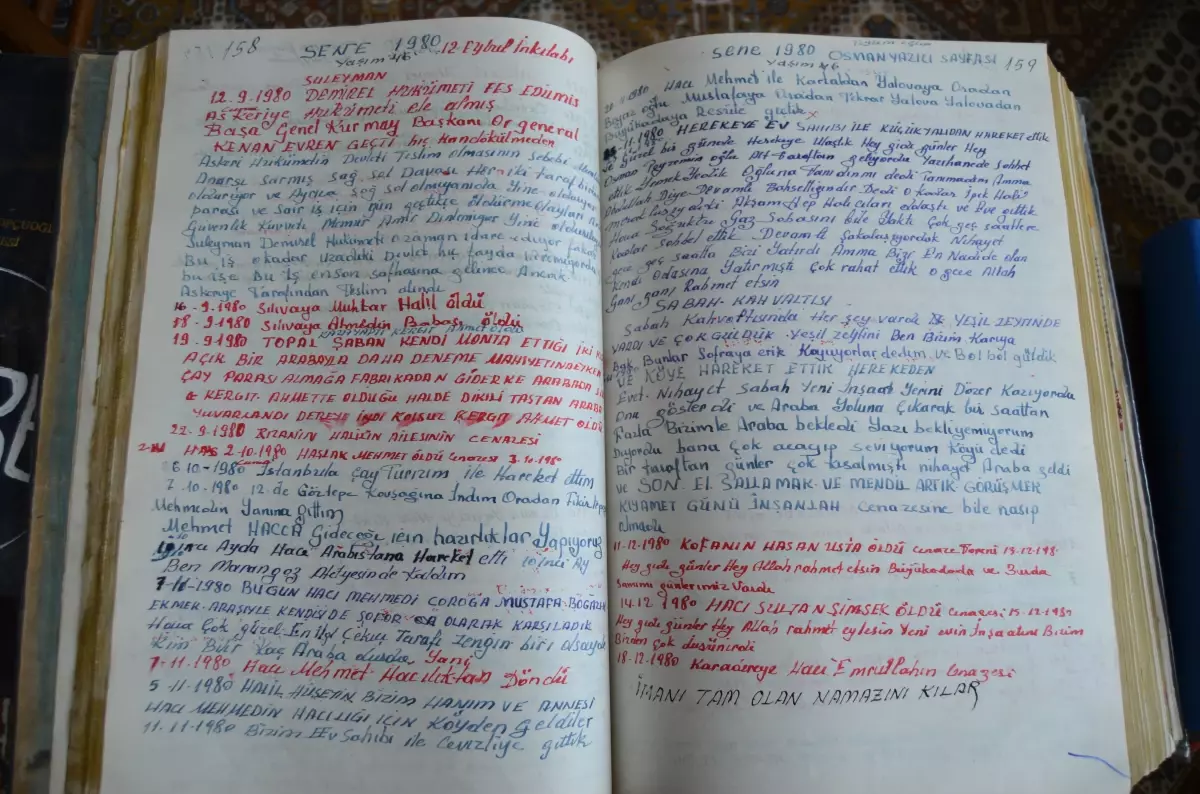 158 SENE 1980 12 Eylul İnkılabı
Yaşım 46
SULEYMAN
12.9.1980 DEMİREL HUKUMETİ FES EDİLMİS
Askeriye Hukümeti ele almış
Başa Genel Kurmay Başkanı Or general
KENAN EVREN GEÇTİ hiç Kandökülmeden
Askeri Hukümetin Devleti Teslim olmasının sebebi
Anarşi sarmış sağ sol Davası Her iki taraf
oldürüyor ve Ayrıca sağ sol olmayanıda Yine
parası ve sair iş için gün geçtikçe öldürme olayları
Güvenlik Kuvveti Memur Amir Dinlemiyor Yine
Süleyman Demirel Hukümeti ozaman idare ediyor
Bu iş okadar uzadıki Devlet hiç fayda
bu işe Bu iş enson safhasına gelince Ancak
Askeriye Tarafından Teslim alındı
16-9-1980 Silivaya Muhtar Halil öldü
18-9-1980 Silivaya Ahmedin Babası öldü
19-9-1980 TOPAL ŞABAN KENDİ MONTA ETTİĞİ İKİ
AÇIK BİR ARABAYLA DAHA DENEME MAHİYETİNDEYKEN
ÇAY PARASI ALMAĞA FABRIKADAN GİDERKE ARABADA
& KERGİT AHMETTE OLDUĞU HALDE DİKİLİ TAŞTAN ARABA
YUVARLANDI DEREYE KOLSUZ KERGİT AHMET ÖLDÜ
22-9-1980 RIZANIN HALİL'İN AİLESİNİN CENAZESİ
2-10-1980 HAŞLAK MEHMET ÖLDÜ cenazesi 3-10-1980
6-10-1980 İstanbula Çay Turizm ile Hareket ettim
7-10-1980 12 de Göztepe Kavşağına İndim Oradan
Mehmedin Yanına gittim
Mehmet HACCA Gideceği için hazırlıklar Yapıyoruz
Ayda Hacı Arabistana Hareket etti 10'uncu Ay
Ben Marangoz Atelyesinde Kaldım
7-11-1980 BUGÜN HACI MEHMEDİ MUSTAFA
EKMER ARASIYLE KENDİSİDE ŞOFÖR OLARAK KARŞILADIK
Hava Çok güzel En ilgi Çekici Tarafı Zengin biri olsaydı
Kim Bilir Kaç Araba olurdu Yani
7-11-1980 Hacı Mehmet Hacılıktan Döndü
5-11-1980 HALİL HÜSEYİN BİZİM HANIM VE ANNESİ
HACI MEHMEDİN HACILIĞI İÇİN KÖYDEN GELDİLER
11.11.1980 Bizim Ev Sahibi ile Cevizliye gittik
Sene 1980 OSMAN YAZICI SAYFASI 159
Yaşım 46
1980 HACI Mehmet ile Kartaldan Yalovaya Oradan
Beyaz oğlu Mustafaya Oradan Tekrar Yalova Yalovadan
Büyükadaya Resule gittik
11-1980 HEREKEYE EV SAHİBİ İLE KÜÇÜKYALIDAN HAREKET ettik
Güzel bir günde Herekeye Ulaştık Hey gidi günler Hey
Osman oğlu Alt taraftan geliyordu Yazıhanede sohbet
ettik Yemek Yedik Oğlana Tanıdınmı dedi Tanımadım Amma
Abdullah Diye Devamlı Bahsettiğindir Dedi O kadar İpek Halı
Akşam Hep Halıcıları dolaştık ve Eve gittik
Hava Soğuktu Gaz Sobasını bile Yaktı Çok geç saatlere
Kadar Sohbet ettik Devamlı Şakalaşıyorduk Nihayet
gece geç saatta Bizi Yatırdı Amma Bizi En Nadide olan
Kendi Odasına Yatırmıştı Çok rahat ettik o gece Allah
Gani gani Rahmet etsin
SABAH-KAHVALTISI
Sabah Kahvaltısında Her şey vardı YEŞİL ZEYTİNDE
VARDI VE ÇOK GÜLDÜK Yeşil zeytini Ben Bizim Karıya
Bunlar Sofraya erik Koyuyorlar dedim ve Bol bol güldük
VE KÖYE HAREKET ETTİK HEREKEDEN
Evet. Nihayet Sabah Yeni İnşaat Yerini Dözer Kazıyordu
Onu gösterdi ve Araba Yoluna Çıkarak bir saattan
Fazla Bizimle Araba bekledi Yazı bekliyemiyorum
Diyordu bana Çok acayıp seviyorum Köyü dedi
Bir taraftan günler çok kısalmıştı nihayet Araba geldi
ve SON El SALLAMAK VE MENDİL ARTIK GÖRÜŞMEK
KIYAMET GÜNÜ İNŞANLAH Cenazesine bile nasip
olmadı
11-12-1980 KOFANIN HASAN USTA ÖLDÜ Cenaze Töreni
Hey gidi günler Hey Allah rahmet etsin Büyükadada ve Burda
samimi günlerimiz Vardı
14.12 1980 HACI SULTAN ŞİMŞEK ÖLDÜ Cenazesi 15-12-1980
Hey gidi günler Hey Allah rahmet eylesin Yeni evin İnşaatını Bizim
Bizden Çok düşünürdü
18-12-1980 Karadereye Hacı Emrullahın Cenazesi
İMANI TAM OLAN NAMAZINI KILAR